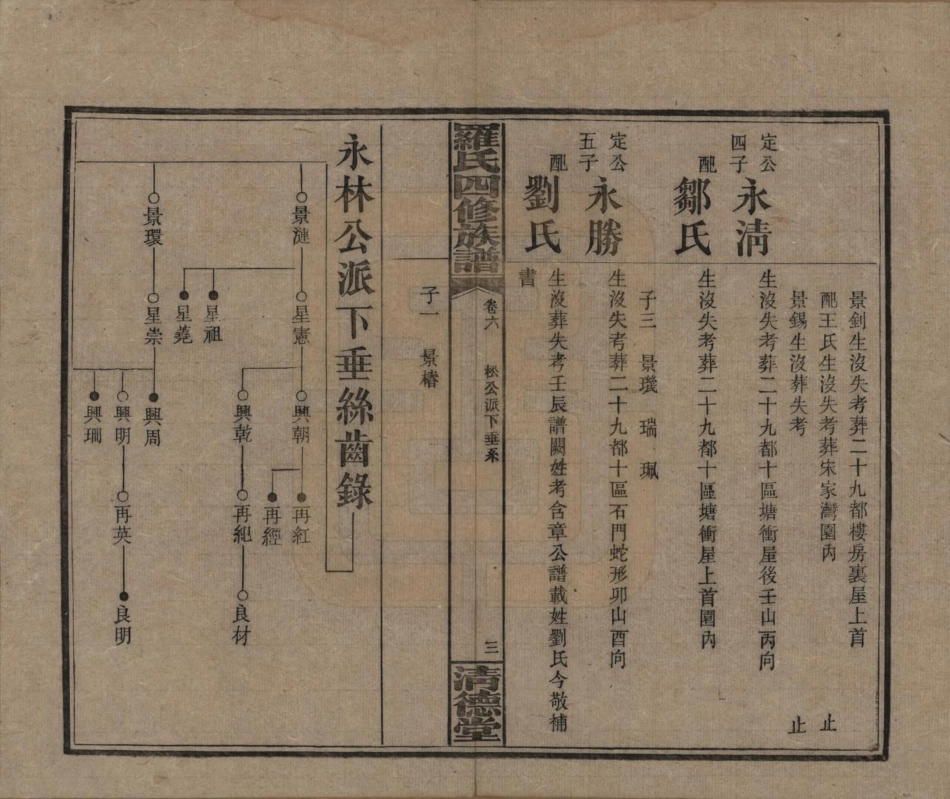 景釗生沒失考葬二十九都樓房裏屋上首
配王氏生沒失考葬宋家灣園內 止
景錫生沒葬失考 止
定公四子 永清 生沒失考葬二十九都十區塘衝屋後壬山丙向
配 鄒氏 生沒失考葬二十九都十區塘衝屋上首園內
子三 景璣 瑞 珮
定公五子 永勝 生沒失考葬二十九都十區石門蛇形卯山酉向
配 劉氏 生沒葬失考壬辰譜闕姓考含章公譜載姓劉氏今敬補
書
羅氏四修族譜 卷六 松公派下垂系 三 清德堂
子一 景椿
永林公派下垂絲齒錄
景漣 星憲 興朝 再紅
再經
興乾 再紀 良材
星祖
星蕘
景環 星崇 興周
興明 再英 良明
興琱